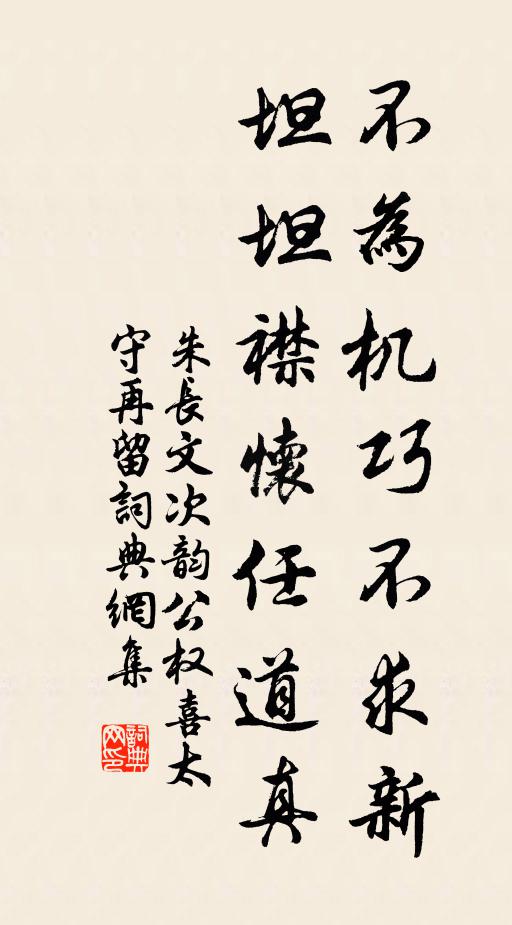 不為机巧不求新
坦坦襟懷任道真
朱長文次韵公权喜太
守再留詞典網集
詞典网印